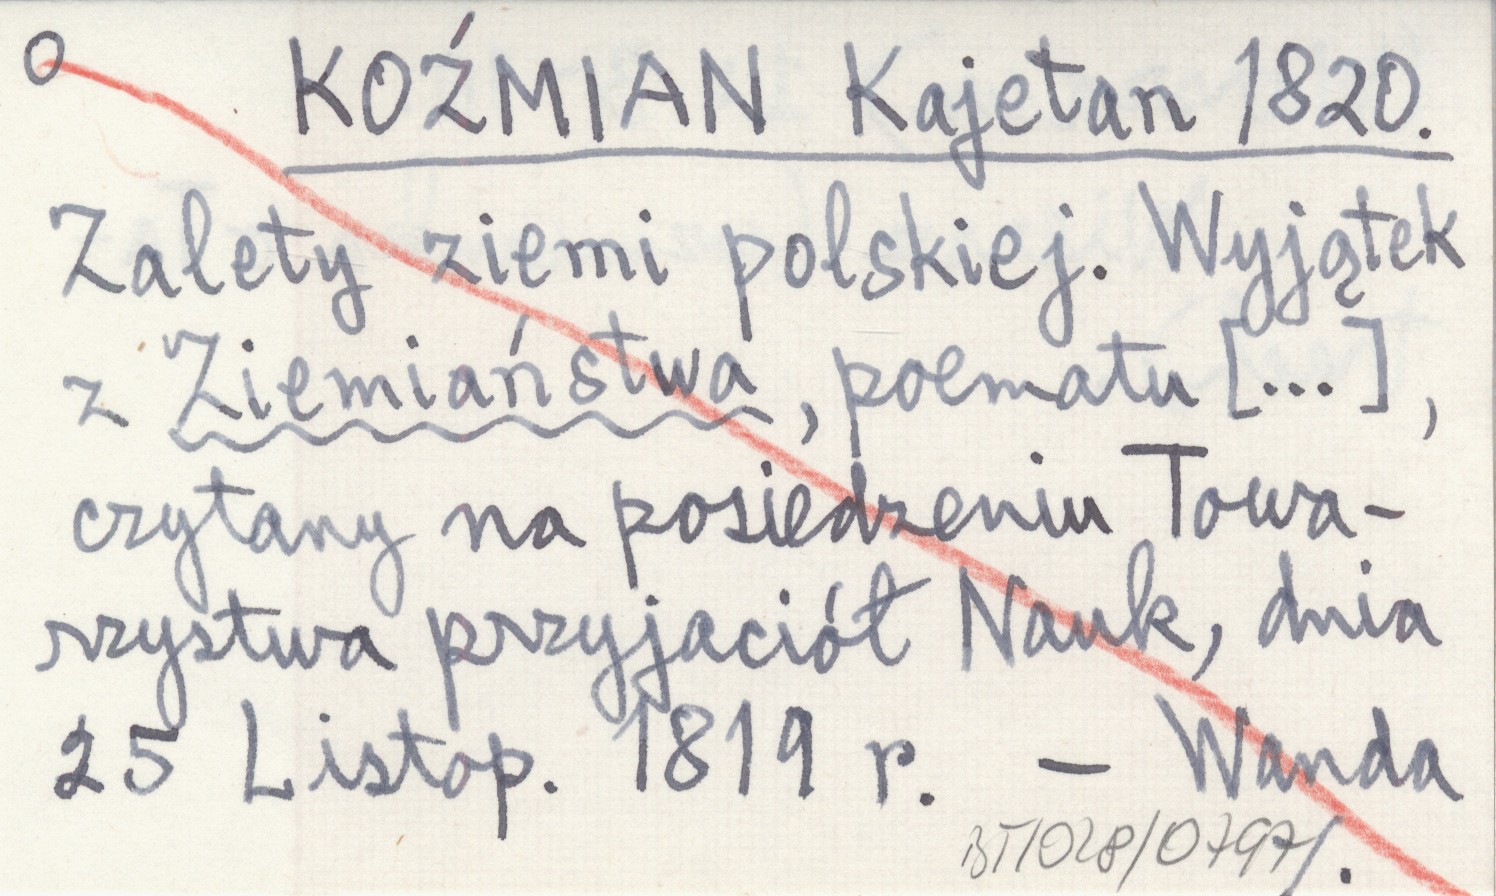 O KOŹMIAN Kajetan 1820.
Zalety ziemi polskiej. Wyjątek
z Ziemiaństwa, poematu [...],
czytany na posiedzeniu Towa-
rzystwa przyjaciół Nauk, dnia
25 Listop. 1819 r. — Wanda
BT/028/0797/.